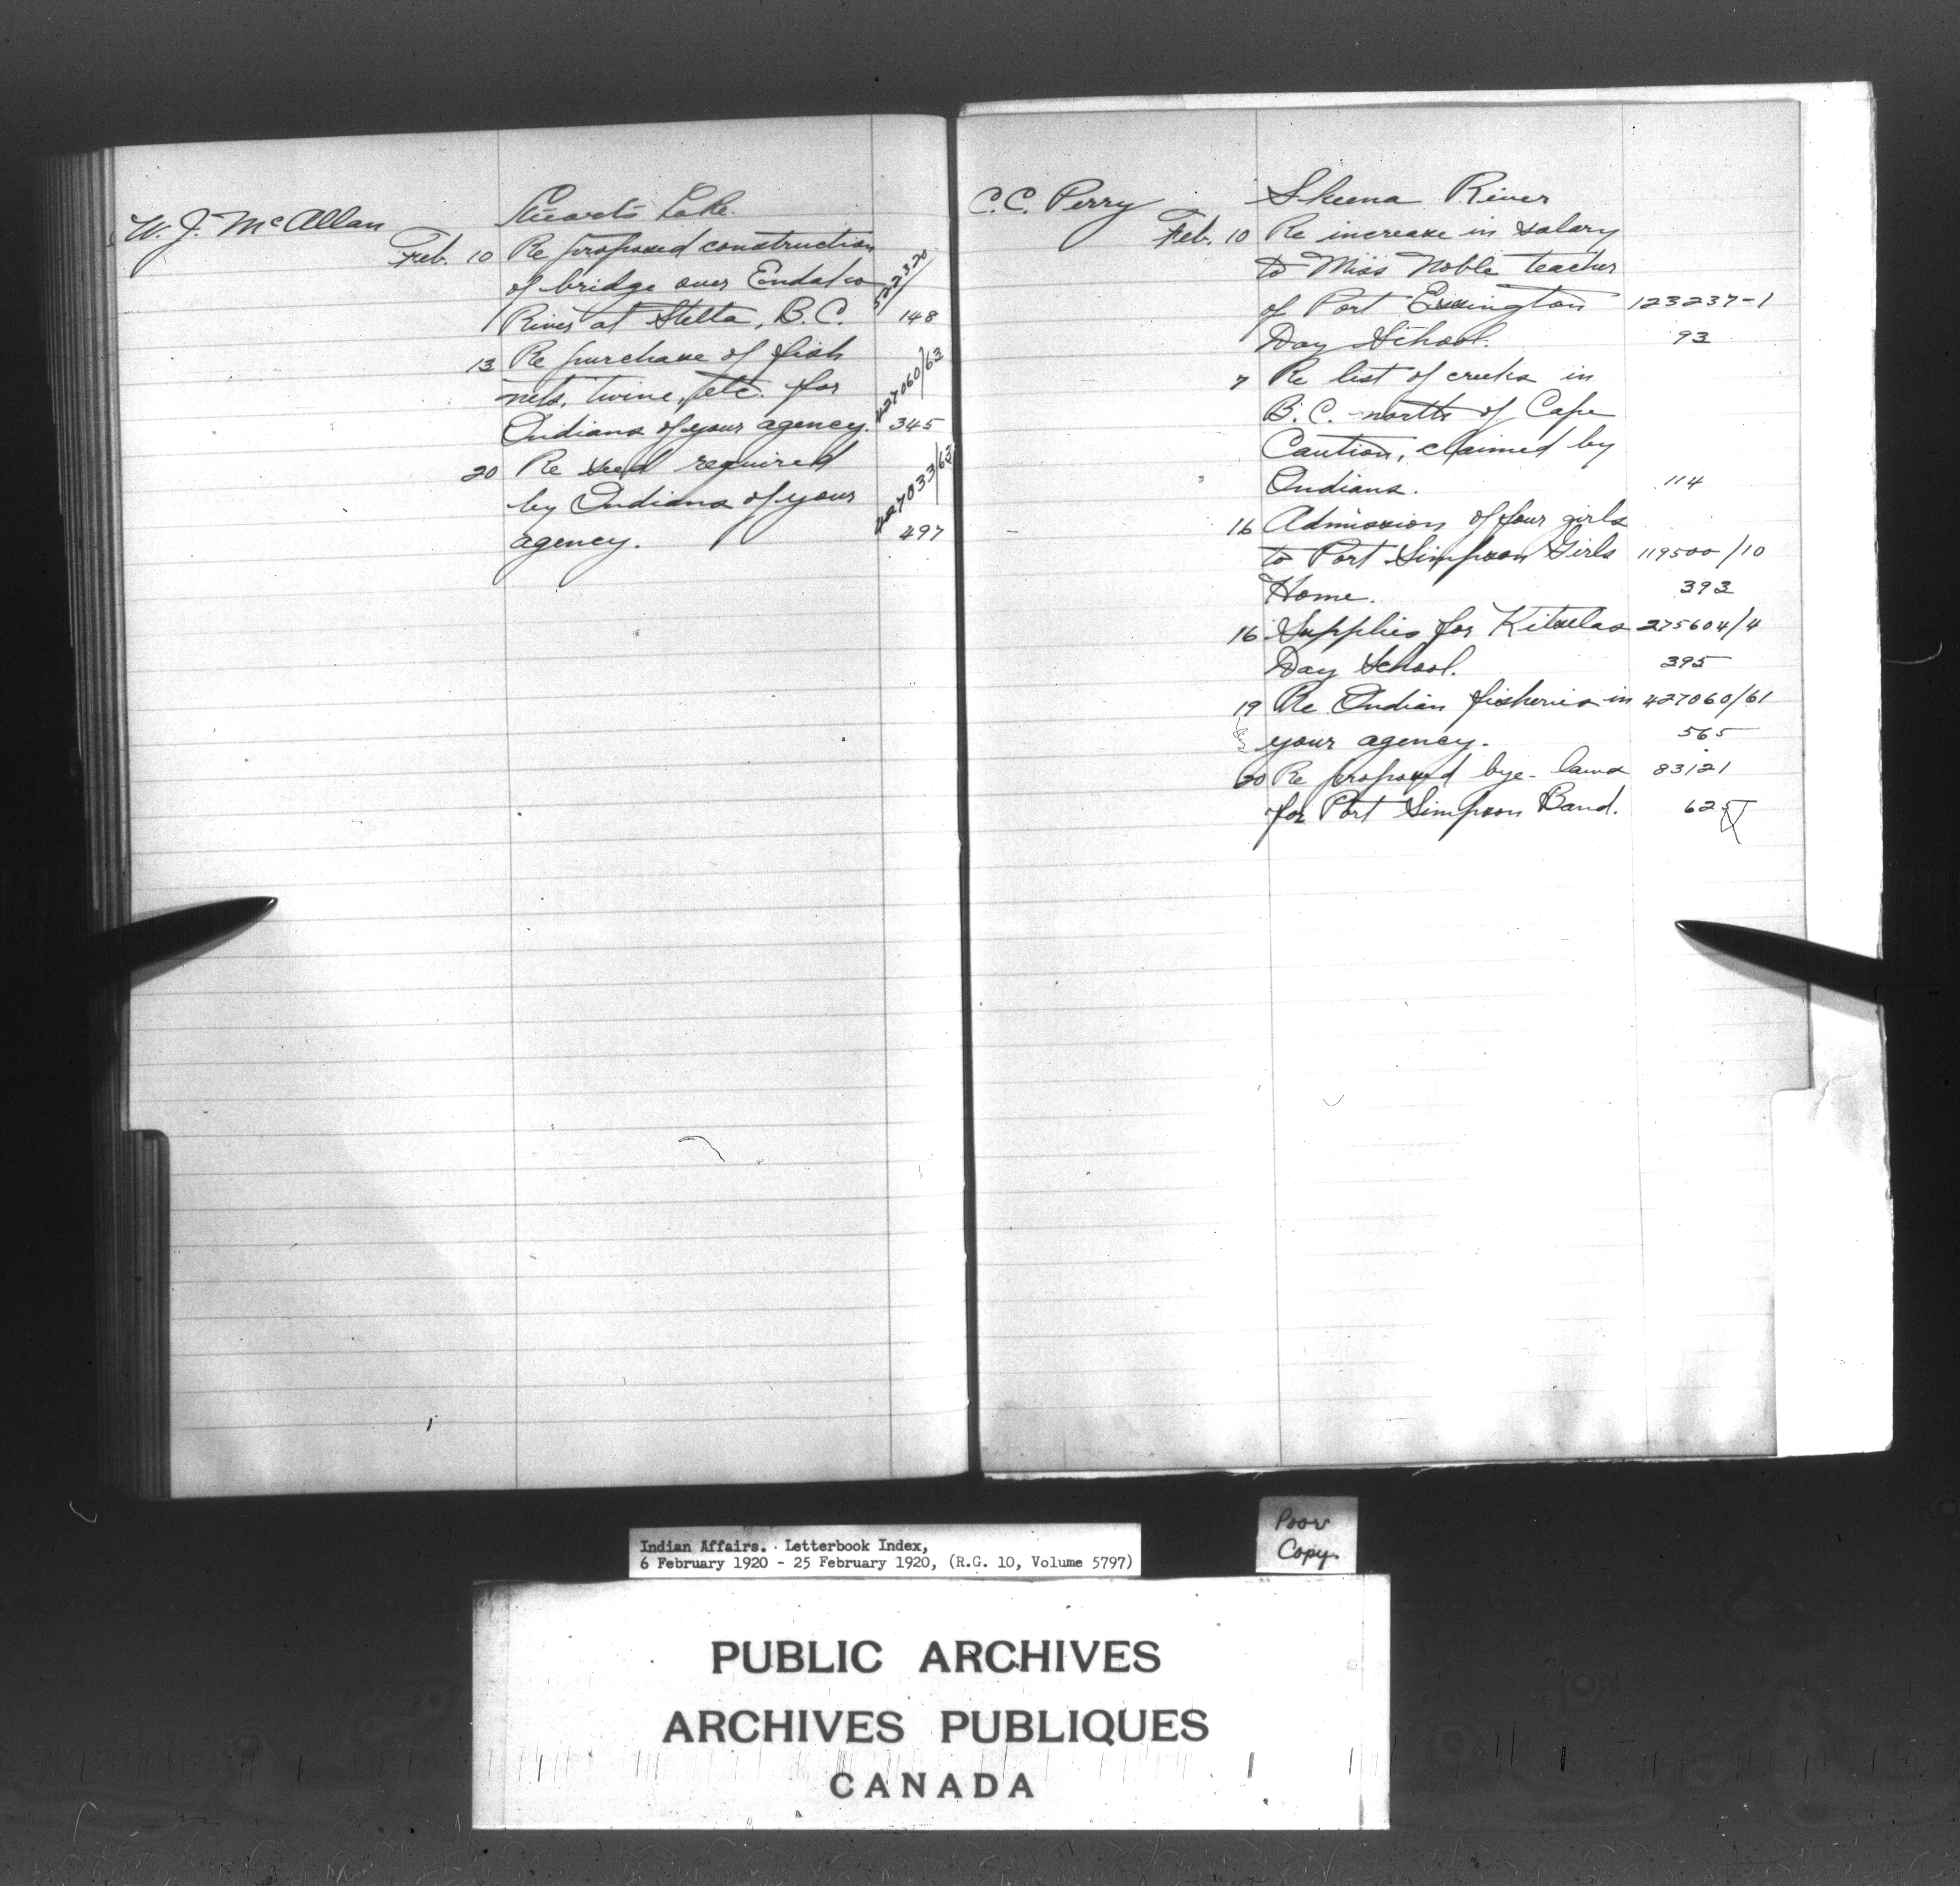 W. J. McAllan
Stuarts Lake.
Feb. 10 Re proposed construction
of bridge over Endako
River at Stella, B.C. 148
13 Re purchase of fish
nets, twine, etc. for 427060/63
Indians of your agency. 345
20 Re seed required
by Indians of your 427033/63
agency. 497
C.C. Perry
Skeena River
Feb. 10 Re increase in salary
to Miss Noble teacher
of Port Essington 123237-1
Day School. 93
7 Re list of creeks in
B.C. north of Cape
Caution, claimed by
Indians. 114
16 Admission of four girls
to Port Simpson Girls 119500/10
Home. 393
16 Supplies for Kitselas 275604/4
Day School. 395
19 Re Indian fisheries in 427060/61
your agency. 565
20 Re proposed bye-laws 83121
for Port Simpson Band. 625
Indian Affairs. Letterbook Index,
6 February 1920 - 25 February 1920, (R.G. 10, Volume 5797)
Poor
Copy.
PUBLIC ARCHIVES
ARCHIVES PUBLIQUES
CANADA